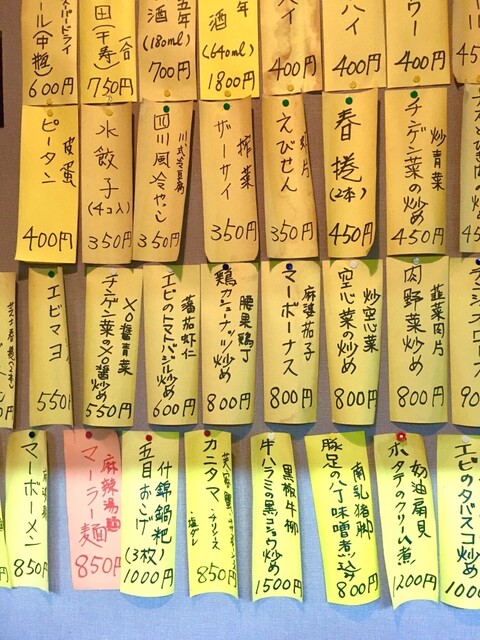 ール(中瓶)
600円
田(千寿)
一合
750円
五年
酒
(180ml)
700円
年
酒
(640ml)
1800円
ハイ
400円
ハイ
400円
ワー
400円
皮蛋
ピータン
400円
水餃子
(4コ入)
350円
川式冷豆腐
四川風冷やっこ
350円
搾菜
ザーサイ
350円
えびせん
350円
春捲
(2本)
450円
炒青菜
チンゲン菜の炒め
450円
エビマヨ
550円
XO醤青菜
チンゲン菜のXO醤炒め
550円
蕃茄虾仁
エビのトマトバジル炒め
600円
腰果鶏丁
鶏カシューナッツ炒め
800円
麻婆茄子
マーボーナス
800円
炒空心菜
空心菜の炒め
800円
韮菜肉片
肉野菜炒め
800円
マーボーメン
850円
麻辣湯麺
マーラー麺
850円
什錦鍋粑
五目おこげ
(3枚)
1000円
カニタマ
850円
黒椒牛柳
牛ハラミの黒コショウ炒め
1500円
南乳猪脚
豚足の八丁味噌煮込み
800円
奶油扇貝
ホタテのクリーム煮
1200円
エビのタバスコ炒め